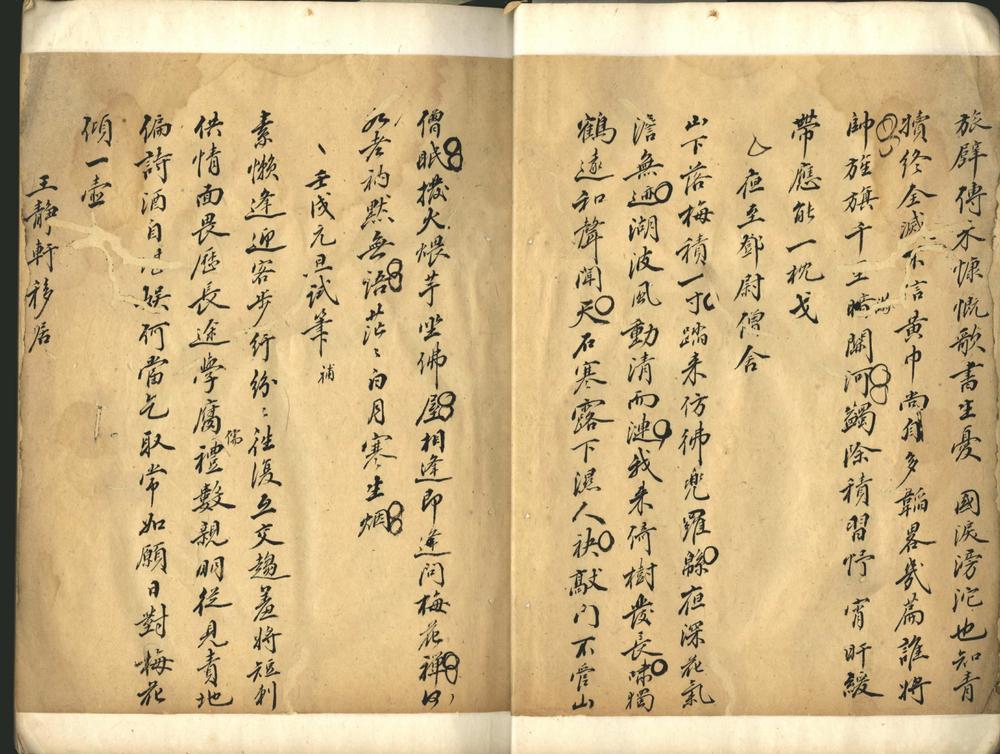 旅壁傳來慷慨歌書生憂　國淚滂沱也知青
犢終全滅不信黃巾尚自多韜畧幾篇誰將
帥旌旗千里暗關河蠲除積習忬宵旰緩
帶應能一枕戈
夜至鄧尉僧舍
山下落梅積一寸踏来仿彿兜羅緜夜深花氣
澹無迹湖波風動清而漣我来倚樹發長嘯獨
鶴遠和聲聞天石寒露下濕人袂敲门不管山
僧眠撥火煨芋坐佛屋相逢即逢问梅花禪
老衲默無語茫〻白月寒生烟
壬戌元旦试筆 補
素懶逢迎客步行紛〻往復互交趨羞將短刺
供情面畏歷長途學腐儒禮數親朋從見責地
偏詩酒自娱何當乞取常如願日對梅花
傾一壺
王靜軒移居